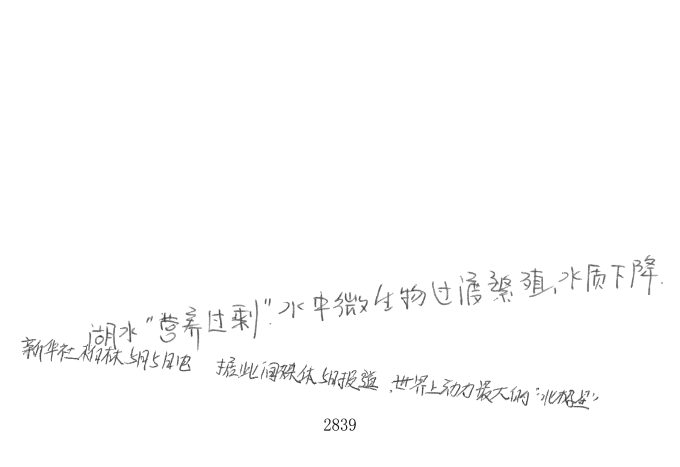 湖水“营养过剩”.水中微生物过度繁殖,水质下降.
新华社柏林5月5日电 据此间媒体5日报道,世界上动力最大的“北极星”
2839